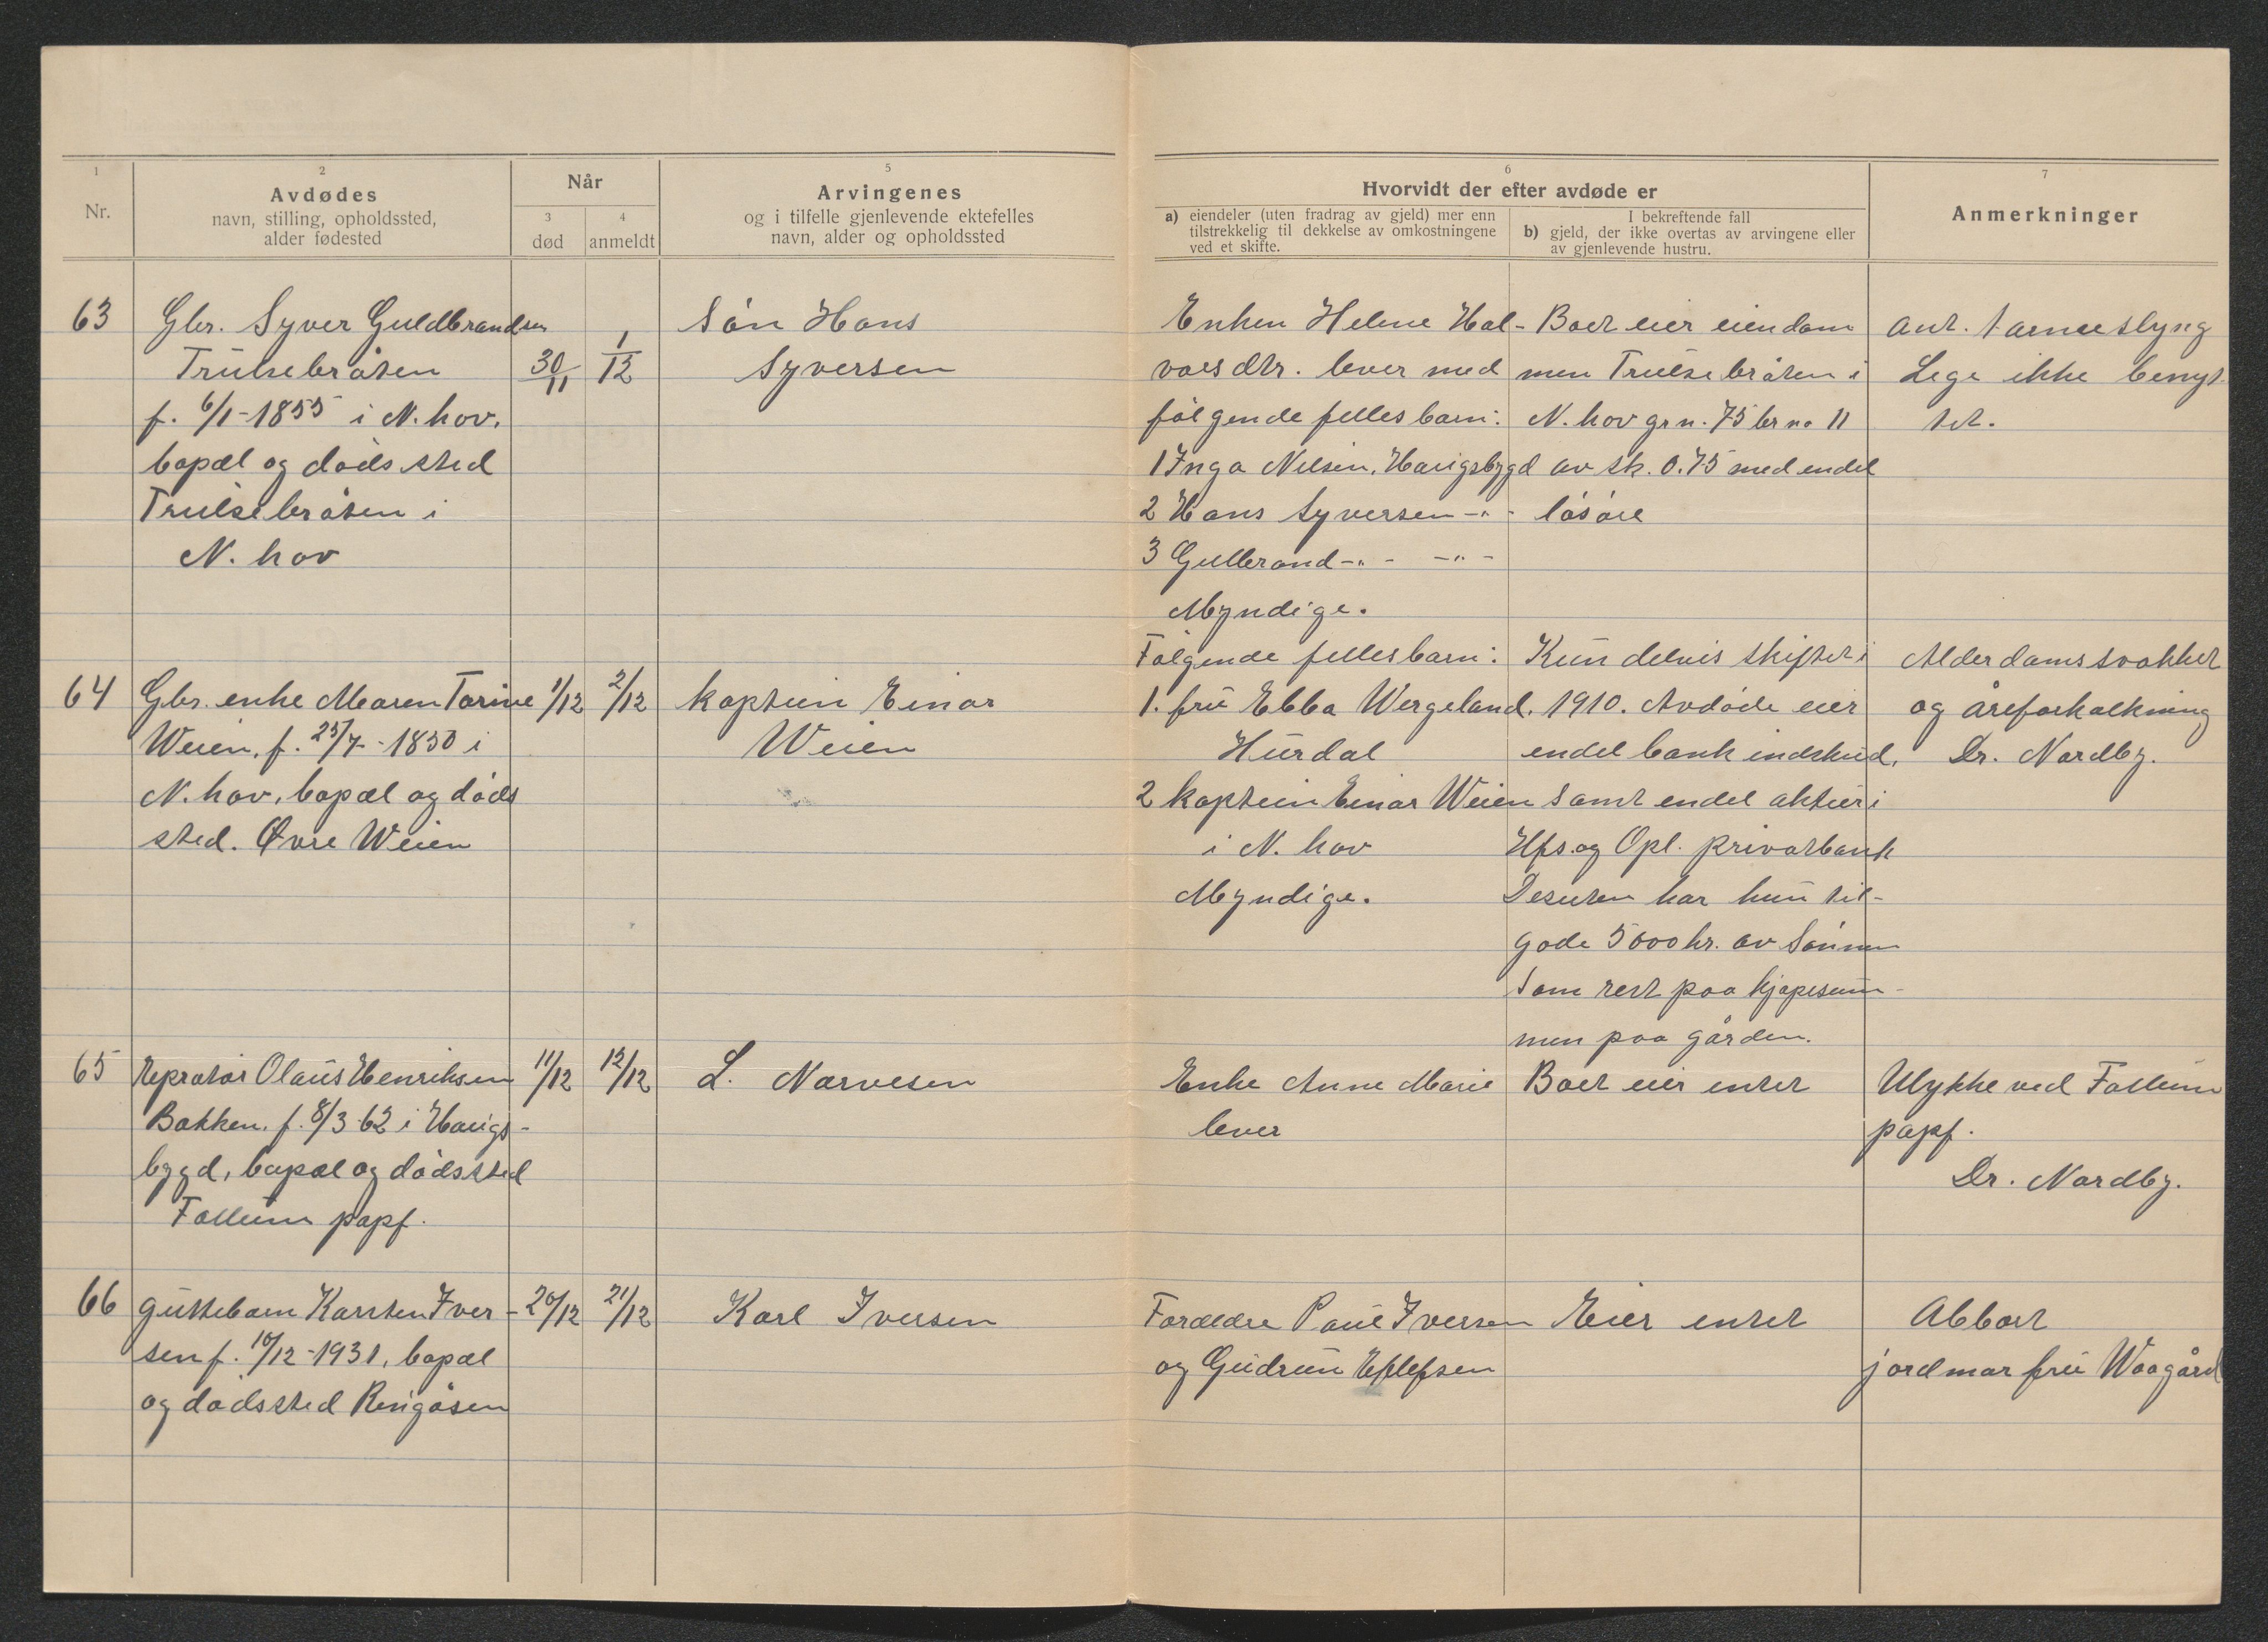 1
Nr.
2
Avdødes
navn, stilling, opholdssted,
alder fødested
Når
3
død
4
anmeldt
5
Arvingenes
og i tilfelle gjenlevende ektefelles
navn, alder og opholdssted
6
Hvorvidt der efter avdøde er
a) eiendeler (uten fradrag av gjeld) mer enn
tilstrekkelig til dekkelse av omkostningene
ved et skifte.
I bekreftende fall
b) gjeld, der ikke overtas av arvingene eller
av gjenlevende hustru.
7
Anmerkninger
63
Gbr. Syver Guldbrandsen
Trulsebråten
f. 6/1-1855 i N.hov.
bopæl og dødssted
Trulsebråten i
N. hov
30/11
1/12
Søn Hans
Syversen
Enken Helene Hal-
vorsdtr. lever med
følgende fellesbarn:
1 Inga Nilsen, Haugsbygd
2 Hans Syversen -"-
3 Gulbrand -"- -"-
Myndige.
Boet eier eiendom
men Trulsebråten i
N. hov grn. 75 brno 11
av sk. 0.75 med endel
løsøre
Ant. tarmeslyng
Lege ikke benyt
tet.
64
Gbr. enke Maren Torine
Weien, f. 25/7-1850 i
N.hov, bopæl og døds
sted. Øvre Weien
1/12
2/12
kaptein Einar
Weien
Følgende fellesbarn:
1. fru Ebba Wergeland,
Hurdal
2 kaptein Einar Weien
i N. hov
Myndige.
Kun delvis skiftet i
1910. Avdøde eier
endel bankindskud,
samt endel aktier i
Hfs. og Opl. privatbank
Desuten har hun til-
gode 5000 kr. av Sønnen
som rest paa kjøpesum-
men paa gården.
Alderdomssvakhet
og åreforkalkning
Dr. Nordby.
65
Repratør Olaus Henriksen
Bakken. f. 8/3-62 i Haugs-
bygd, bopæl og dødssted
Follum papf.
11/12
12/12
L. Narvesen
Enke Anne Marie
lever
Boet eier intet
Ulykke ved Follum
papf.
Dr. Nordby.
66
Guttebarn Karsten Iver-
sen f. 10/12-1931, bopæl
og dødssted Ringåsen
20/12
21/12
Karl Iversen
Foreldre Paul Iversen
og Gudrun Eflefsen
Eier intet
Abbort
jordmor fru Waagård